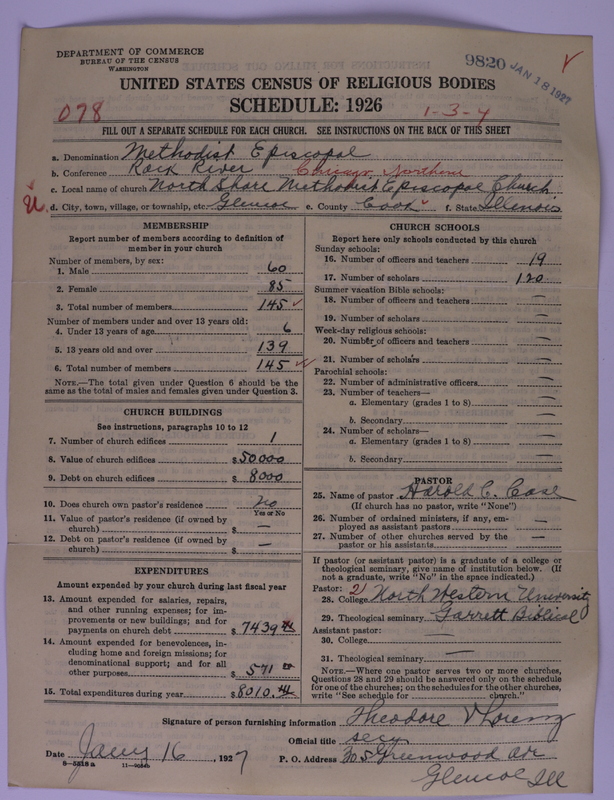 DEPARTMENT OF COMMERCE
BUREAU OF THE CENSUS
WASHINGTON
9820 JAN 18 1927
UNITED STATES CENSUS OF RELIGIOUS BODIES
SCHEDULE: 1926
078 1-3-4
FILL OUT A SEPARATE SCHEDULE FOR EACH CHURCH. SEE INSTRUCTIONS ON THE BACK OF THIS SHEET
a. Denomination Methodist Episcopal
b. Conference Rock River Chicago Northern
c. Local name of church North Shore Methodist Episcopal Church
d. City, town, village, or township, etc. Glencoe e. County Cook f. State Illinois
MEMBERSHIP
Report number of members according to definition of member in your church
Number of members, by sex:
1. Male 60
2. Female 85
3. Total number of members 145
Number of members under and over 13 years old:
4. Under 13 years of age 6
5. 13 years old and over 139
6. Total number of members 145
NOTE.—The total given under Question 6 should be
same as the total of males and females given under Question 3.
CHURCH BUILDINGS
See instructions, paragraphs 10 to 12
7. Number of church edifices 1
8. Value of church edifices $50000
9. Debt on church edifices $8000
10. Does church own pastor's residence no
Yes or No
11. Value of pastor's residence (if owned by
church) $ —
12. Debt on pastor's residence (if owned by
church) $ —
EXPENDITURES
Amount expended by your church during last fiscal year
13. Amount expended for salaries, repairs,
and other running expenses; for im-
provements or new buildings; and for
payments on church debt $7439
14. Amount expended for benevolences, in-
cluding home and foreign missions; for
denominational support; and for all
other purposes $571
15. Total expenditures during year $8010.
CHURCH SCHOOLS
Report here only schools conducted by this church
Sunday schools:
16. Number of officers and teachers 19
17. Number of scholars 120
Summer vacation Bible schools:
18. Number of officers and teachers —
19. Number of scholars —
Week-day religious schools:
20. Number of officers and teachers —
21. Number of scholars —
Parochial schools:
22. Number of administrative officers —
23. Number of teachers—
a. Elementary (grades 1 to 8) —
b. Secondary —
24. Number of scholars—
a. Elementary (grades 1 to 8) —
b. Secondary —
PASTOR
25. Name of pastor Harold C. Case
(If church has no pastor, write "None")
26. Number of ordained ministers, if any, em-
ployed as assistant pastors —
27. Number of other churches served by the
pastor or his assistants —
If pastor (or assistant pastor) is a graduate of a college or
theological seminary, give name of institution below. (If
not a graduate, write "No" in the space indicated.)
Pastor: 2/
28. College North Western University
29. Theological seminary Garrett Biblical
Assistant pastor:
30. College —
31. Theological seminary —
NOTE.—Where one pastor serves two or more churches,
Questions 28 and 29 should be answered only on the schedule
for one of the churches; on the schedules for the other churches,
write "See schedule for church."
Signature of person furnishing information Theodore V
Official title secy.
Date Jany 16, 1927 P. O. Address Greenwood ave
Glencoe Ill